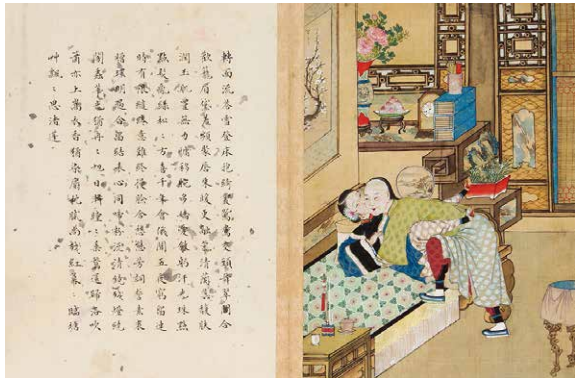 轉面流花雪登床抱綺叢鴛鴦交頸舞翡翠合
歡籠眉黛羞頻聚唇朱暖更融氣清蘭蕊馥膚
潤玉肌豐無力慵移腕多嬌愛斂躬汗光珠點
點髮亂綠松〻方喜千年會俄聞五夜窮留連
時有限繾綣意難終慢臉含愁態芳詞誓素衷
贈環明運合留結表心同啼粉流清鏡殘燈繞
暗蟲華光猶冉〻旭日漸曈〻乘鶩還歸洛吹
簫亦上嵩衣香猶染麝枕膩尚殘紅冪〻臨塘
艸飄〻思渚蓬